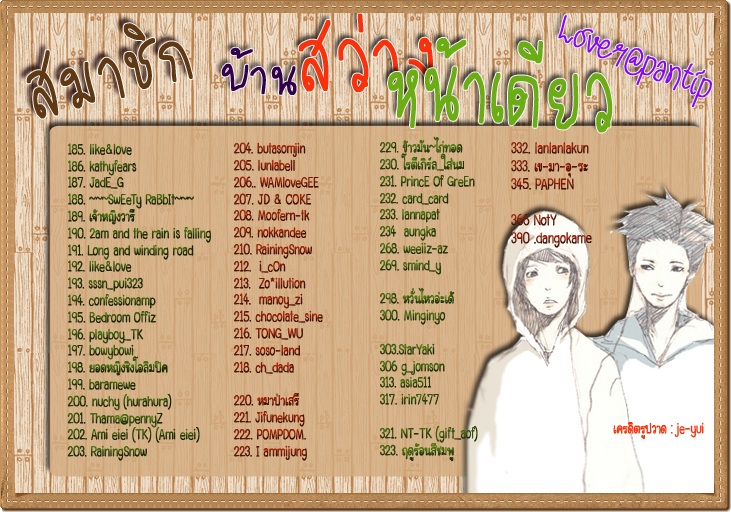 สมาชิก บ้านสว่างหน้าเดียว
Lover@pantip
185. like&love
186. kathyfears
187. JadE_G
188. ~~~SwEeTy RaBbIt~~~
189. เจ้าหญิงวารี
190. 2am and the rain is falling
191. Long and winding road
192. like&love
193. sssn_pui323
194. confessionamp
195. Bedroom Offiz
196. playboy_TK
197. bowybowi
198. ยอดหญิงชิงโอลิมปิค
199. baramewe
200. nuchy (hurahura)
201. Thama@pennyZ
202. Ami eiei (TK) (Ami eiei)
203. RainingSnow
204. butasomjin
205. lunlabell
206.. WAMloveGEE
207. JD & COKE
208. Moofern-tk
209. nokkandee
210. RainingSnow
212. i_cOn
213. Zo*illution
214. manoy_zi
215. chocolate_sine
216. TONG_WU
217. soso-land
218. ch_dada
220. หมาป่าเสรี
221. Jifunekung
222. POMPDOM.
223. I ammijung
229. ข้าวมัน~ไก่ทอด
230. โรตีเกิร์ล_ใส่นม
231. PrincE Of GreEn
232. card_card
233. iannapat
234 aungka
268. weeiiz-az
269. smind_y
298. หวั่นไหวอ่ะเด้
300. Minginyo
303.StarYaki
306 g_jomson
313. asia511
317. irin7477
321. NT-TK (gift_aof)
323. ฤดูร้อนสีชมพู
332. lanlanlakun
333. เข-มา-อุ-ระ
345. PAPHEN
366 NotY
390 .dangokame
เครดิตรูปวาด : je-yui